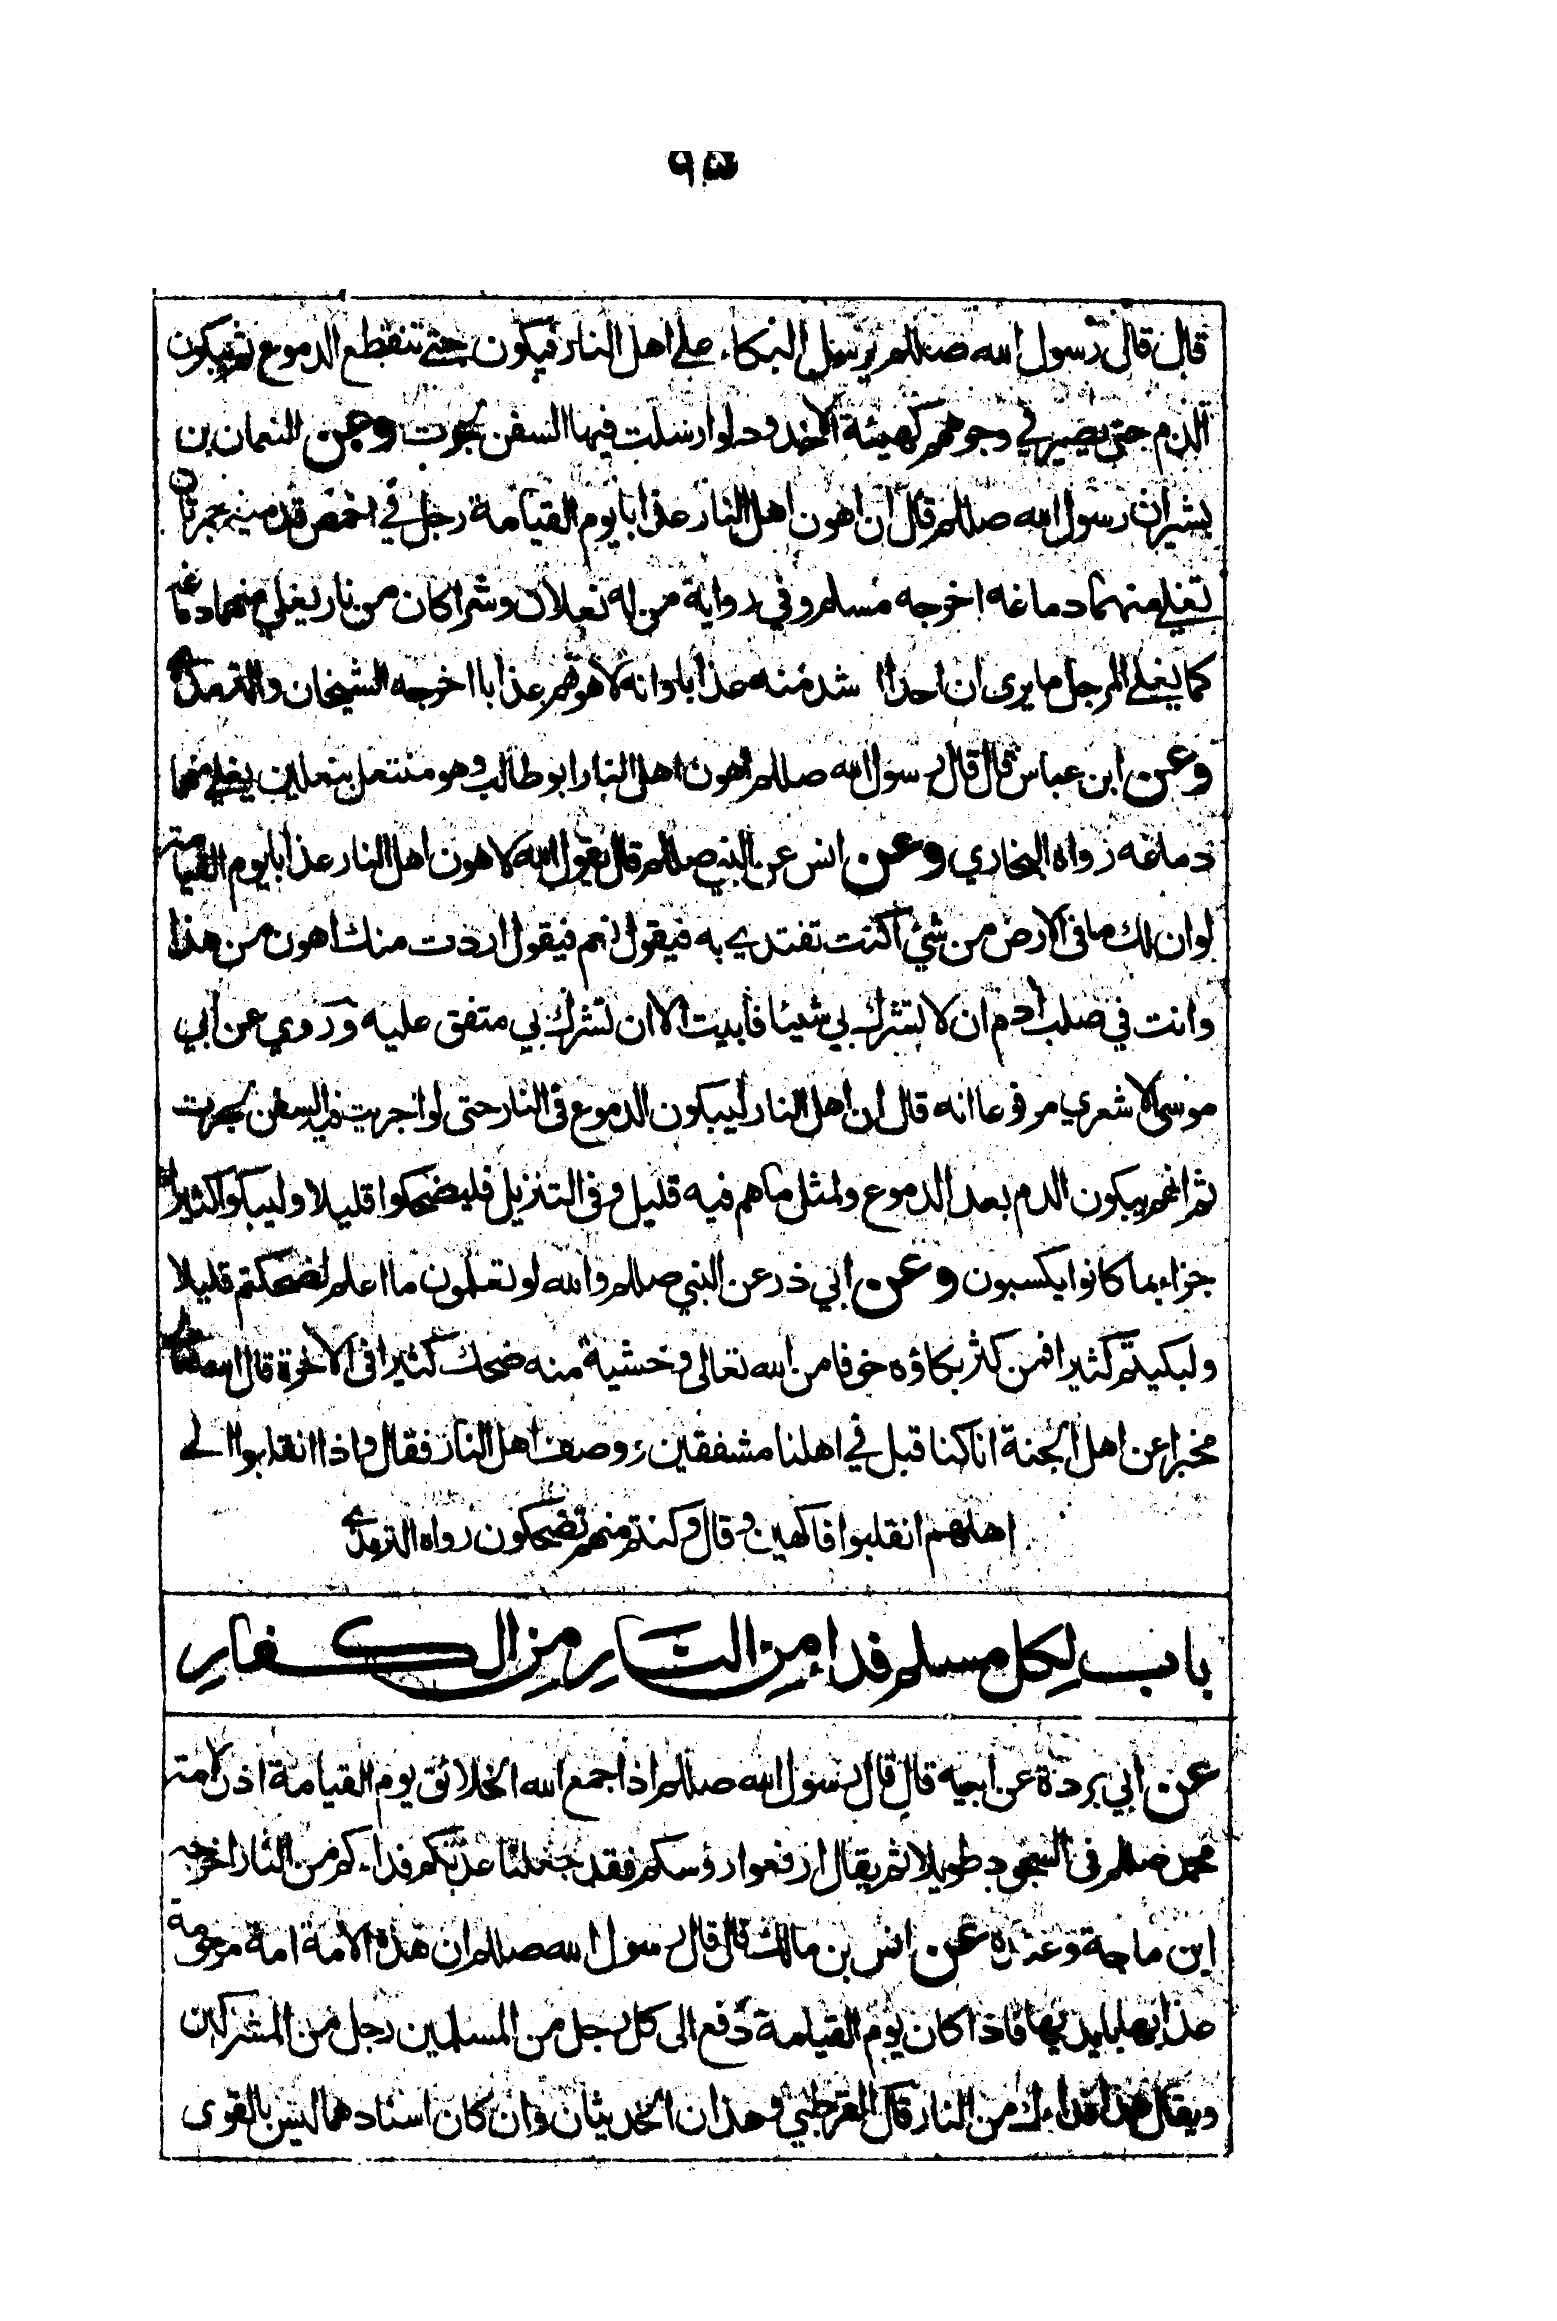 ٩٥
قال قال رسول الله صللم يرسل البكاء على اهل النار فيبكون حتى تنقطع الدموع ثم يبكون
الدم حتى يصير في وجوههم كهيئة الاخدود لو ارسلت فيها السفن لجرت وعن النعمان بن
بشير ان رسول الله صللم قال ان اهون اهل النار عذابا يوم القيامة رجل في اخمص قدميه جمرتان
تغلي منهما دماغه اخرجه مسلم وفي رواية من له نعلان وشراكان من نار يغلي منهما دماغه
كما يغلي المرجل ما يرى ان احدا اشد منه عذابا وانه لاهونهم عذابا اخرجه الشيخان والترمذي
وعن ابن عباس قال قال رسول الله صللم اهون اهل النار ابو طالب وهو منتعل بنعلين يغلي منهما
دماغه رواه البخاري وعن انس عن النبي صللم قال يقول الله لاهون اهل النار عذابا يوم القيامة
لو ان لك ما في الارض من شئ اكنت تفتدي به فيقول نعم فيقول اردت منك اهون من هذا
وانت في صلب آدم ان لا تشرك بي شيئا فأبيت الا ان تشرك بي متفق عليه وروي عن أبي
موسى الاشعري مرفوعا انه قال ان اهل النار ليبكون الدموع في النار حتى لو اجريت فيه السفن لجرت
ثم انهم يبكون الدم بعد الدموع ولمثل ما هم فيه قليل وفي التنزيل فليضحكوا قليلا وليبكوا كثيرا
جزاء بما كانوا يكسبون وعن ابي ذر عن النبي صللم والله لو تعلمون ما اعلم لضحكتم قليلا
ولبكيتم كثيرا فمن كثر بكاؤه خوفا من الله تعالى وخشية منه ضحك كثيرا في الاخرة قال الله تعالى
مخبرا عن اهل الجنة انا كنا قبل في اهلنا مشفقين ووصف اهل النار فقال واذا انقلبوا الى
اهلهم انقلبوا فاكهين وقال وكنتم منهم تضحكون رواه الترمذي
باب لكل مسلم فداء من النار من الكفار
عن ابي بردة عن ابيه قال قال رسول الله صللم اذا جمع الله الخلائق يوم القيامة اذن لامة
محمد صللم في السجود طويلا ثم يقال ارفعوا رؤسكم فقد جعلنا عدتكم فداءكم من النار اخرجه
ابن ماجة وعنده عن انس بن مالك قال قال رسول الله صللم ان هذه الامة امة مرحومة
عذابها بايديها فاذا كان يوم القيامة دفع الى كل رجل من المسلمين رجل من المشركين
ويقال هذا فداءك من النار قال القرطبي وهذان الحديثان وان كان اسنادهما ليس بالقوى